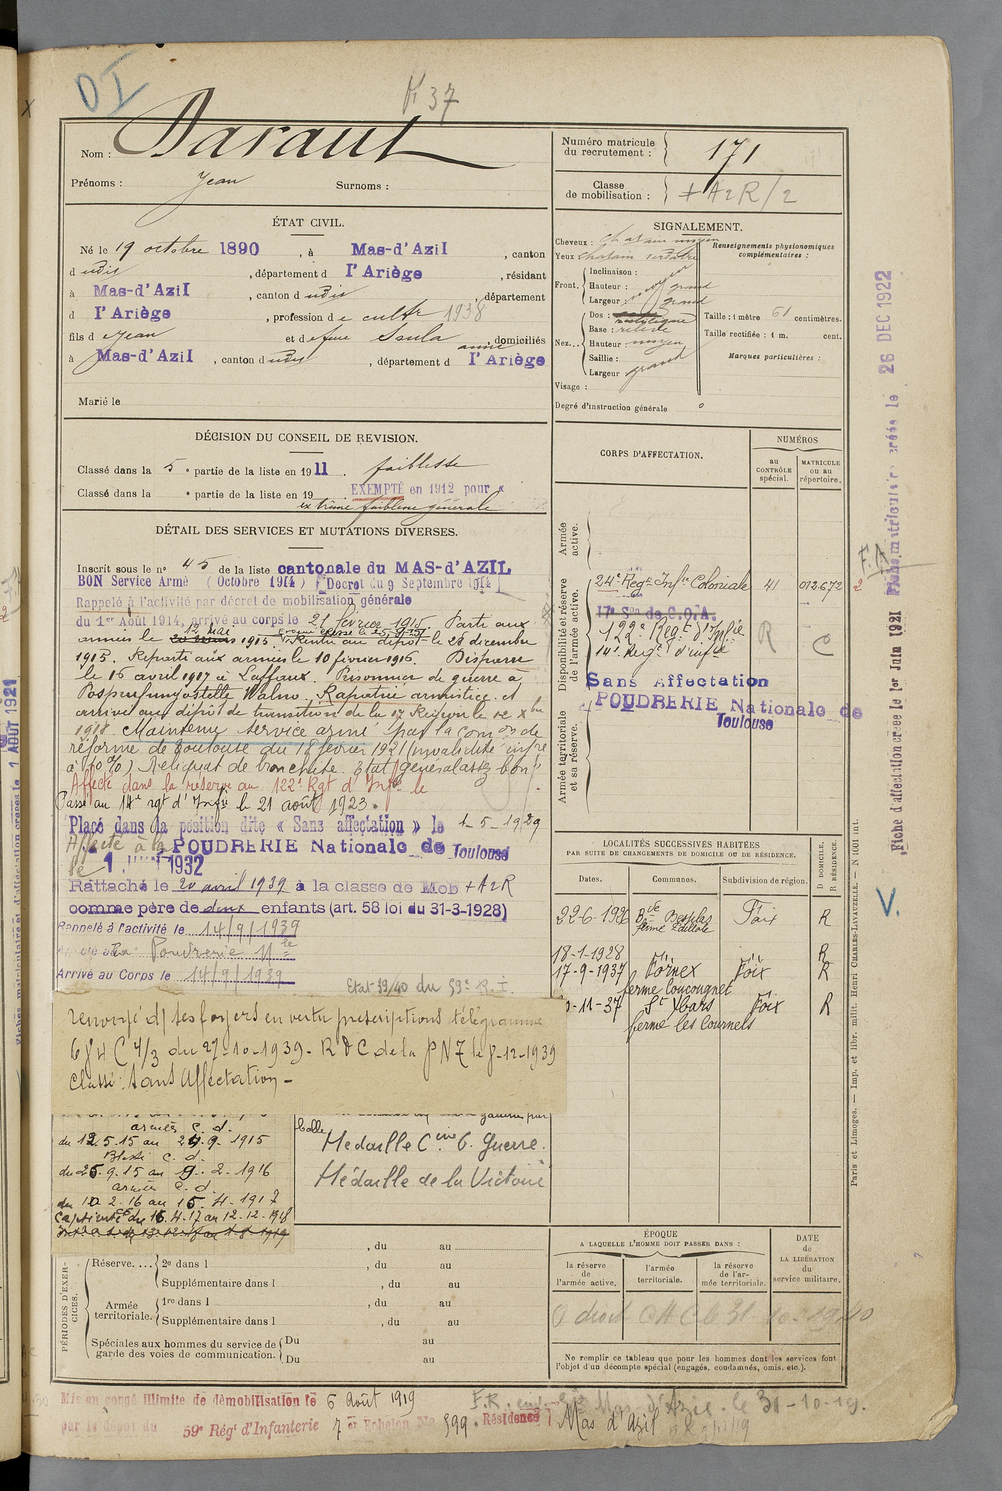 DI
K 37
Nom : Daraut
Prénoms : Jean Surnoms :
Numéro matricule du recrutement : 171
Classe de mobilisation : + A2R/2
ÉTAT CIVIL.
Né le 19 octobre 1890, à Mas-d'Azil, canton
d udis, département d l'Ariège, résidant
à Mas-d'Azil, canton d udis, département
d l'Ariège, profession d e cultr 1938
fils d e Jean et d e feue Soula anne, domiciliés
à Mas-d'Azil, canton d udis, département d l'Ariège
Marié le
SIGNALEMENT.
Cheveux : chatain moyen
Yeux chatain verdatre
Front. Inclinaison : moyen
Hauteur : grand
Largeur : grand
Nez... Dos : rectiligne
Base : relevée
Hauteur moyen
Saillie :
Largeur grand
Visage :
Degré d'instruction générale 0
Renseignements physionomiques complémentaires :
Taille : 1 mètre 61 centimètres.
Taille rectifiée : 1 m. cent.
Marques particulières :
DÉCISION DU CONSEIL DE REVISION.
Classé dans la 5e partie de la liste en 1911. faiblesse
Classé dans la e partie de la liste en 19 EXEMPTÉ en 1912 pour «
extrême faiblesse générale
DÉTAIL DES SERVICES ET MUTATIONS DIVERSES.
Inscrit sous le no 45 de la liste cantonale du MAS-d'AZIL
BON Service Armé (Octobre 1914) (Decret du 9 Septembre 1914)
Rappelé à l'activité par décret de mobilisation générale
du 1er Août 1914, arrivé au corps le 21 février 1915. Parti aux
armées le 12 mai 1915. Rentré au dépôt le 24 décembre
1915. Reparti aux armées le 10 février 1916. Disparu
le 16 avril 1917 à Laffaux. Prisonnier de guerre à
Rapatrié armistice et
arrivé au dépôt de transition de la 17 Région le 12 Xbre
1918. Maintenu service armé par la Comon de
réforme de Toulouse du 18 février 1921 (invalidité infre
à 10 %) Reliquat de bronchite. Etat général assez bon.
Affecté dans la réserve au 122e Rgt d'Infie le
Passé au 14e rgt d'Infie le 21 août 1923.
Placé dans la position dite « Sans affectation » le 1-5-1929
Affecté à la POUDRERIE Nationale de Toulouse
le 1 1932
Rattaché le 20 avril 1939 à la classe de Mob + A2R
comme père de deux enfants (art. 58 loi du 31-3-1928)
Rappelé à l'activité le 14/9/1939
Poudrerie Nle
Arrivé au Corps le 14/9/1939
Etat 39/40 du 59e R.I.
renvoyé ds ses foyers en vertu prescriptions télégramme
684 C 4/3 du 27-10-1939 - RDC de la PNT le 8-12-1939
Classé : Sans Affectation -
armées C. d.
du 12.5.15 au 24.9.1915
Blessé C. d.
du 25.9.15 au 9.2.1916
armées C. d.
du 10.2.16 au 15.4.1917
Captivité du 16.4.17 au 12.12.1918
Médaille Cive G. Guerre.
Médaille de la Victoire
CORPS D'AFFECTATION.
NUMÉROS
au CONTRÔLE spécial.
MATRICULE ou au répertoire.
Armée active.
Disponibilité et réserve de l'armée active.
24e Régt Infie Coloniale 41 012.672
17e Son de C.O.A.
122e Regt d'Infie R C
14e Regt d'infie
Sans Affectation
POUDRERIE Nationale de
Toulouse
Armée territoriale et sa réserve.
LOCALITÉS SUCCESSIVES HABITÉES
PAR SUITE DE CHANGEMENTS DE DOMICILE OU DE RÉSIDENCE.
Dates. Communes. Subdivision de région. D DOMICILE, R RÉSIDENCE.
22-6-1926 Foix R
18-1-1928 " " R
17-9-1937 Fornex Foix R
ferme Coucougnet
-11-37 St Ybars Foix R
ferme les Cournets
ÉPOQUE
A LAQUELLE L'HOMME DOIT PASSER DANS :
la réserve de l'armée active.
l'armée territoriale.
la réserve de l'armée territoriale.
DATE de LA LIBÉRATION du service militaire.
A droit CAC le 31-10-1940
Ne remplir ce tableau que pour les hommes dont les services font
l'objet d'un décompte spécial (engagés, condamnés, omis, etc.).
PÉRIODES D'EXERCICES.
, du au
Réserve.... 2e dans l , du au
Supplémentaire dans l , du au
Armée territoriale. 1re dans l , du au
Supplémentaire dans l , du au
Spéciales aux hommes du service de garde des voies de communication. Du au
Du au
Mis en congé illimité de démobilisation le 6 Août 1919
par le dépôt du 59e Rég d'Infanterie 7e Echelon No 399. Résidence Mas d'Azil
Mas-d'Azil. le 31-10-19.
Fiche d'affectation créée le 1er Juin 1921
Fiches matriculaires créées le 26 DEC 1922
F. A
V.
Paris et Limoges. — Imp. et libr. milit. Henri CHARLES-LAVAUZELLE. — N 1001 int.
Fiches matriculaire et d'affectation créées le 1 AOUT 1921